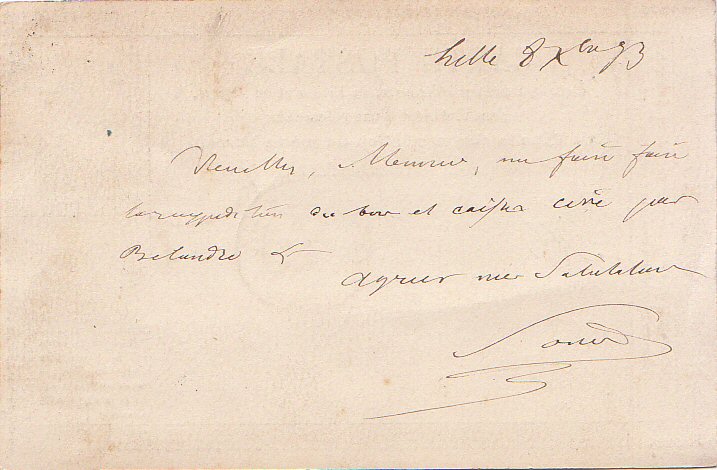 Lille 8 Xbre 93
Veuillez, Monsieur, me faire faire
la réexpédition du bon et caisse ciré par
Belandre &
Agréer mes Salutations